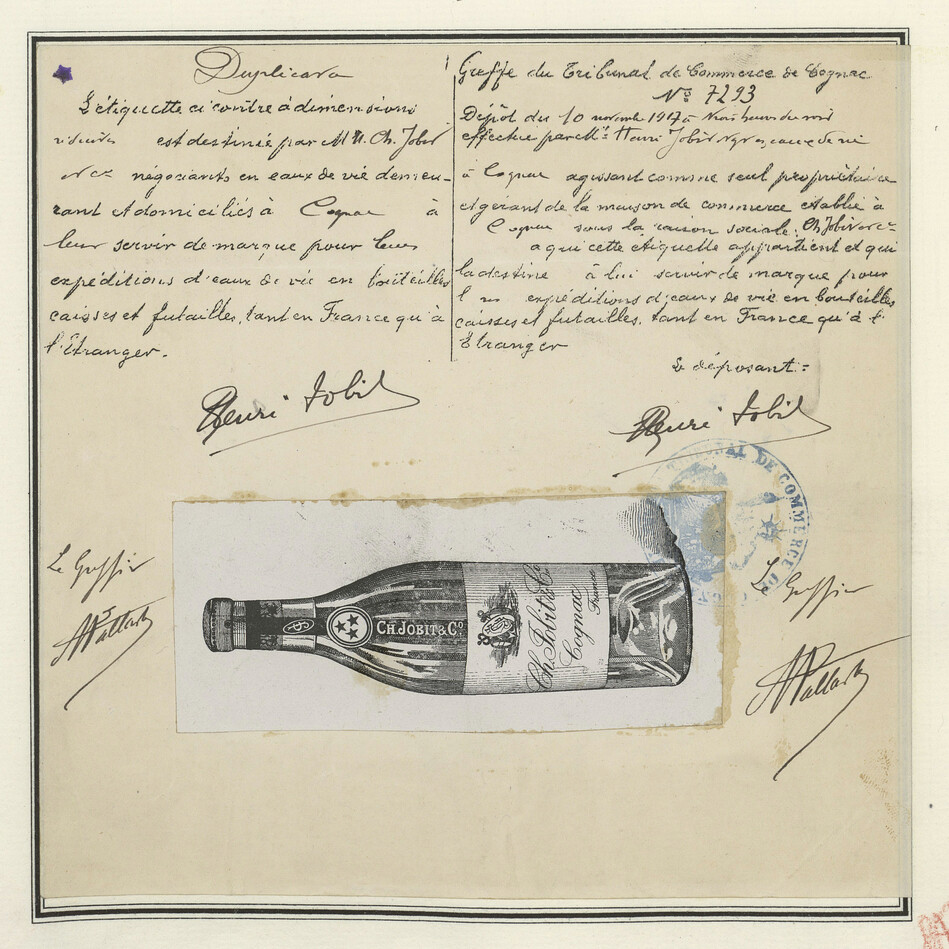 Duplicata
L'étiquette ci contre à dimensions
réduites est destinée par MM. Ch. Jobit
et Cie négociants en eaux de vie demeu-
rant et domiciliés à Cognac à
leur servir de marque pour leurs
expéditions d'eaux de vie en bouteilles
caisses et futailles, tant en France qu'à
l'Étranger.
Henri Jobit
Greffe du Tribunal de Commerce de Cognac
No 7293
Dépôt du 10 novembre à heures du
effectué par Mr Henri Jobit eaux de vie
à Cognac agissant comme seul propriétaire
et gérant de la maison de commerce établie à
Cognac sous la raison sociale: Ch Jobit et Cie
a qui cette étiquette appartient et qui
la destine à lui servir de marque pour
expéditions d'eaux de vie en bouteilles
caisses et futailles, tant en France qu'à l'
Étranger
Le déposant:
Henri Jobit
TRIBUNAL DE COMMERCE DE
Le Greffier
Le Greffier
CH. JOBIT & Co.
Ch. Jobit & Co.
Cognac
France